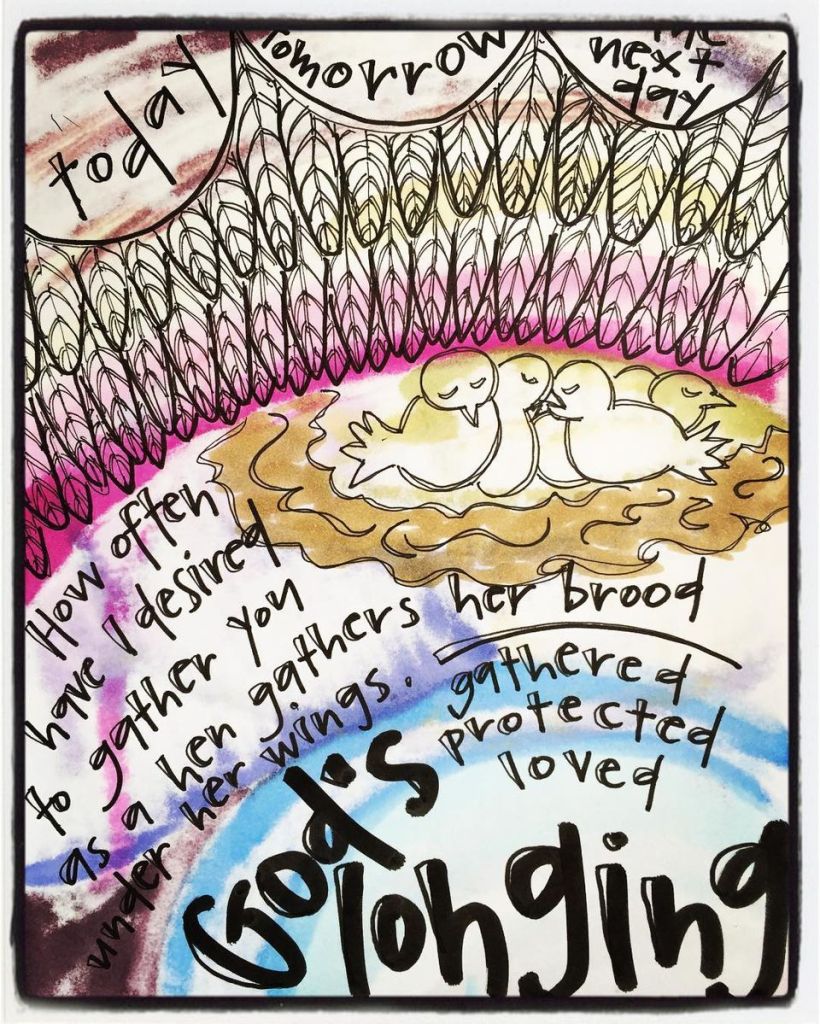 today
tomorrow
the
next
day
How often
have I desired
to gather you
as a hen gathers her brood
under her wings.
gathered
protected
loved
God's
longing